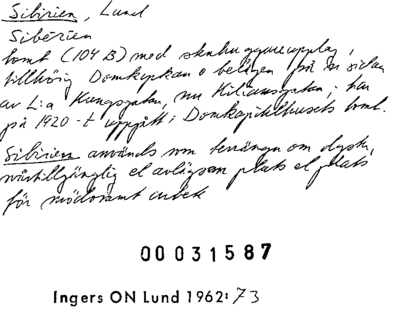 Sibirien, Lund
Sibérien
tomt (104 B) med stenhuggareupplag,
tillhörig Domkyrkan o belägen på n sidan
av L:a Kungsgatan, nu Kiliansgatan; har
på 1920-t uppgått i Domkapitelhusets tomt.
Sibirien används om terräng om dyster,
svårtillgänglig el avlägsen plats el plats
för mödosamt arbete
00031587
Ingers ON Lund 1962:73